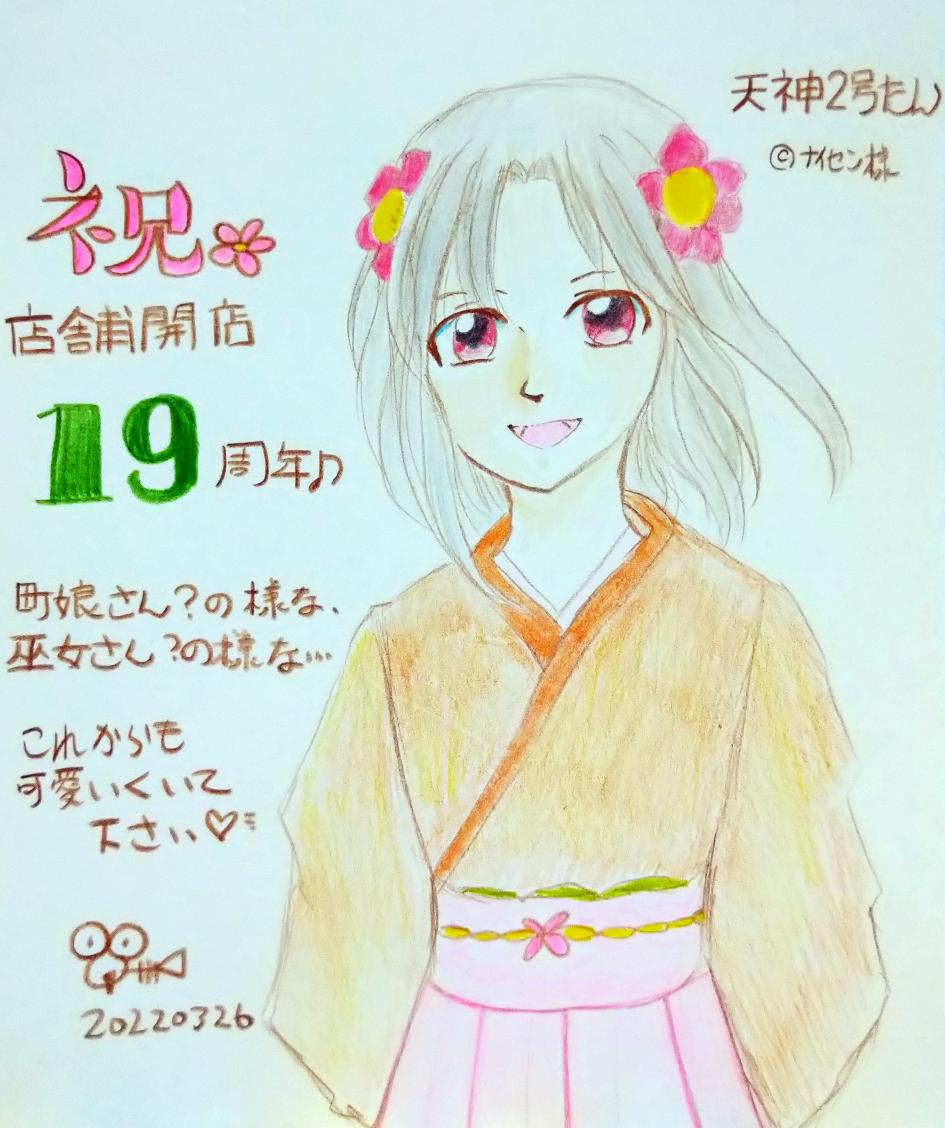 天神2号たん
©ナイセン様
祝
店舗開店
19周年♫
町娘さん?の様な、
巫女さん?の様な…
これからも
可愛いくいて
下さい♡
20220326